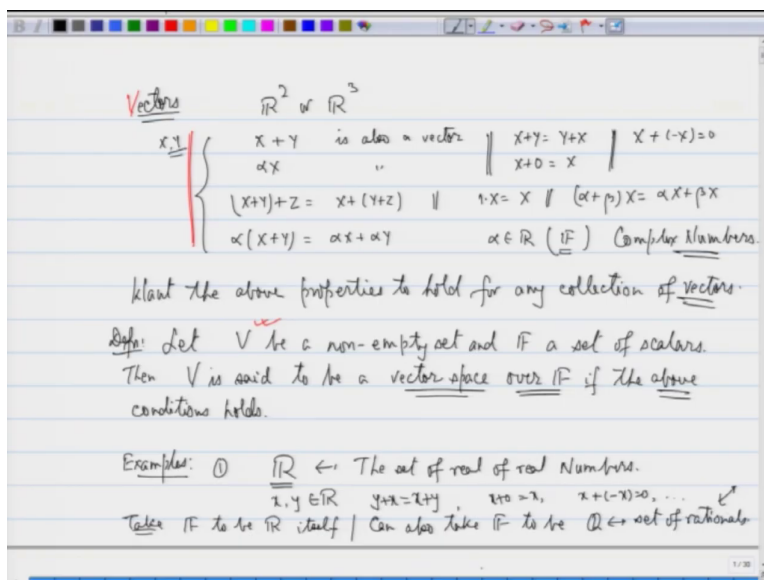 B I
Vectors ℝ² or ℝ³
x, y x + y is also a vector || x+y = y+x | x + (-x) = 0
αx " || x+0 = x
(x+y)+z = x+(y+z) || 1·x = x || (α+β)x = αx+βx
α(x+y) = αx+αy α ∈ ℝ (𝔽) Complex Numbers.
Want the above properties to hold for any collection of vectors.
Defn: Let V be a non-empty set and 𝔽 a set of scalars.
Then V is said to be a vector space over 𝔽 if the above
conditions holds.
Examples: ① ℝ ← The set of real of real Numbers.
x, y ∈ ℝ y+x = x+y, x+0 = x, x+(-x)=0, ...
Take 𝔽 to be ℝ itself | Can also take 𝔽 to be ℚ ↔ set of rationals
1/30